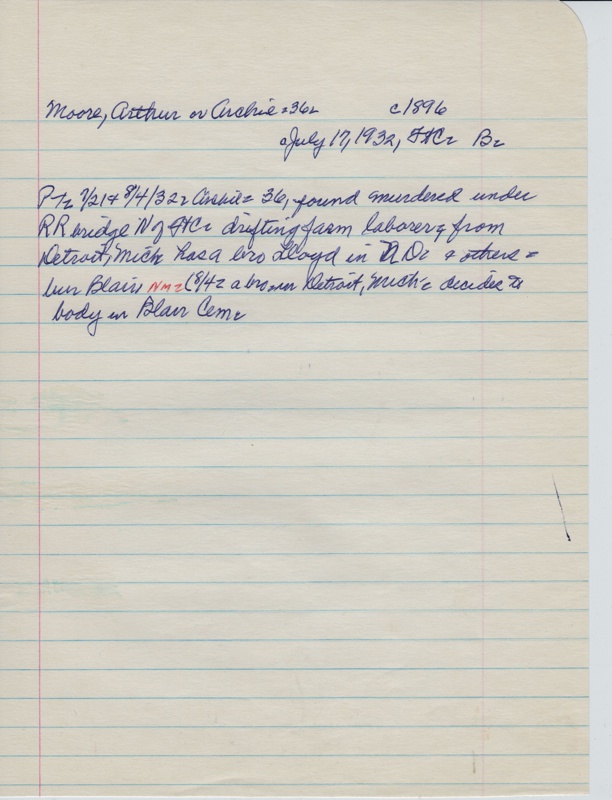 Moore, Arthur or Archie = 36 c1896
July 17, 1932, FtC B
P T 7/21 + 8/4/32 Archie = 36, found murdered under
RR bridge N of FtC drifting farm laborer, from
Detroit, Mich has a bro Lloyd in N D. & others =
bur Blair, NM = (8/4 = a bro in Detroit, Mich decides to
body in Blair Cem